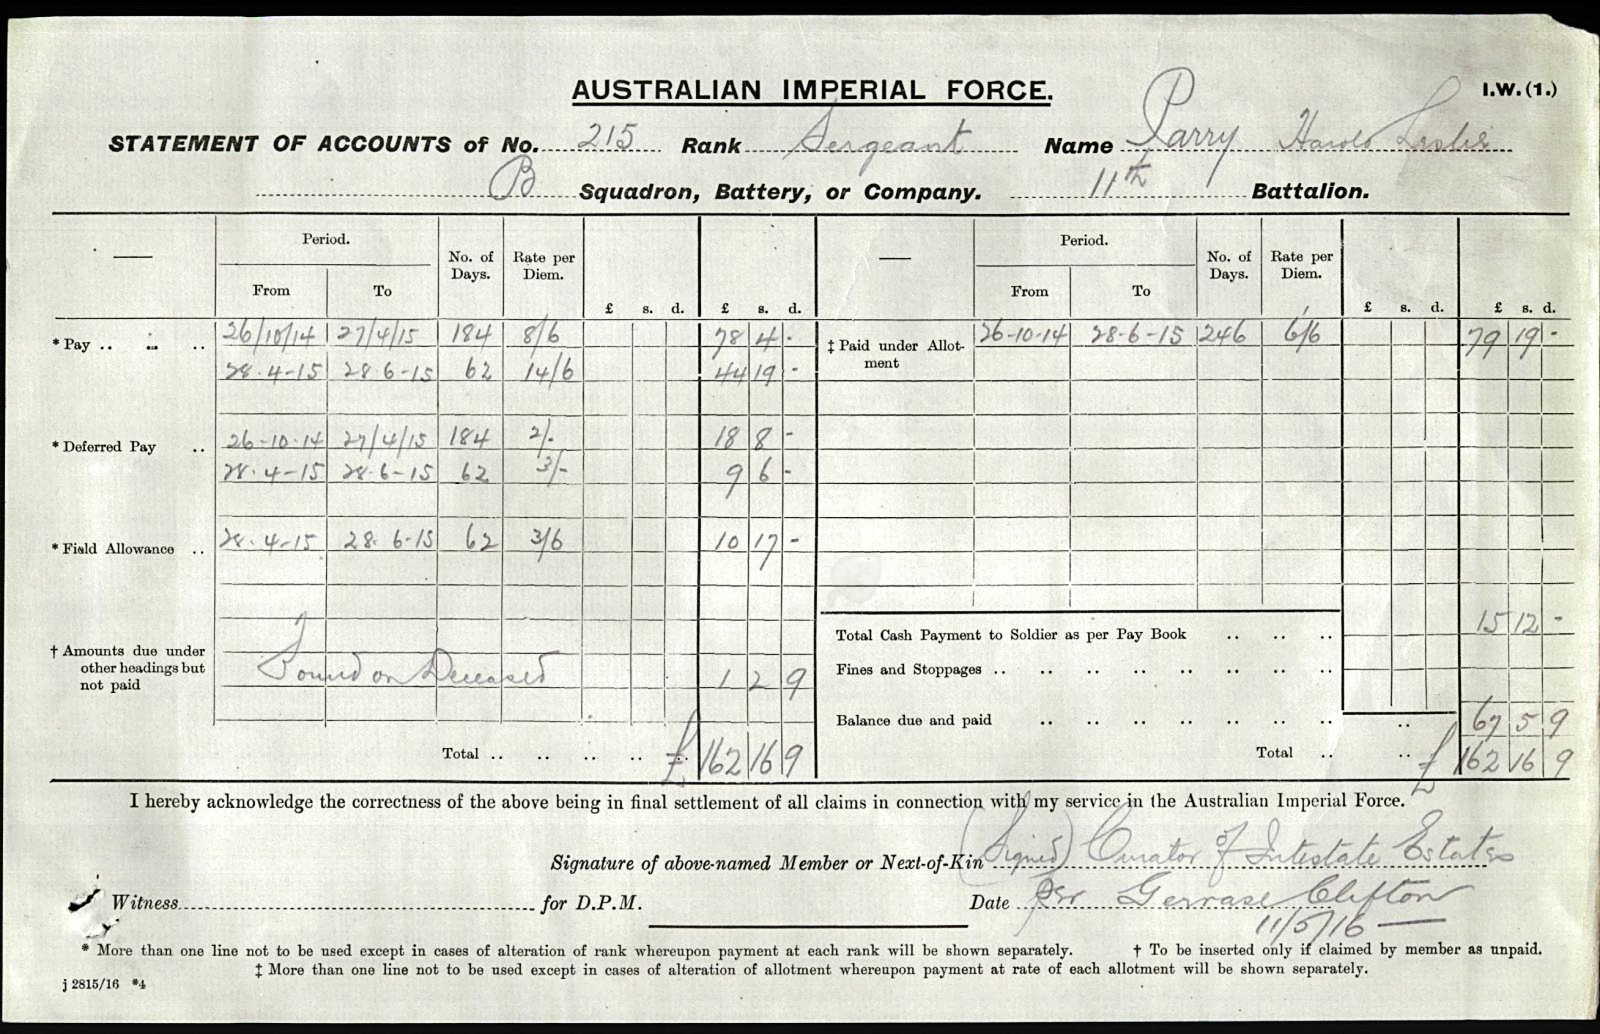 AUSTRALIAN IMPERIAL FORCE.
I.W.(1.)
STATEMENT OF ACCOUNTS of No. 215 Rank Sergeant Name Parry Harold Leslie
B Squadron, Battery, or Company. 11th Battalion.
Period. No. of Days. Rate per Diem. Period. No. of Days. Rate per Diem.
From To £ s. d. £ s. d. From To £ s. d. £ s. d.
* Pay .. .. .. 26/10/14 27/4/15 184 8/6 78 4 - ‡ Paid under Allotment 26-10-14 28-6-15 246 6/6 79 19 -
28-4-15 28-6-15 62 14/6 44 19 -
* Deferred Pay .. 26-10-14 27/4/15 184 2/- 18 8 -
28-4-15 28-6-15 62 3/- 9 6 -
* Field Allowance .. 28-4-15 28-6-15 62 3/6 10 17 -
Total Cash Payment to Soldier as per Pay Book .. .. .. 15 12 -
† Amounts due under other headings but not paid Found on Deceased 1 2 9
Fines and Stoppages .. .. .. .. .. .. .. ..
Balance due and paid .. .. .. .. .. .. .. .. 67 5 9
Total .. .. .. .. .. £ 162 16 9 Total .. .. £ 162 16 9
I hereby acknowledge the correctness of the above being in final settlement of all claims in connection with my service in the Australian Imperial Force.
Signature of above-named Member or Next-of-Kin (Signed) Curator of Intestate Estates
Witness for D.P.M. Date Per Gervase Clifton
11/5/16
* More than one line not to be used except in cases of alteration of rank whereupon payment at each rank will be shown separately. † To be inserted only if claimed by member as unpaid.
‡ More than one line not to be used except in cases of alteration of allotment whereupon payment at rate of each allotment will be shown separately.
j 2815/16 *4